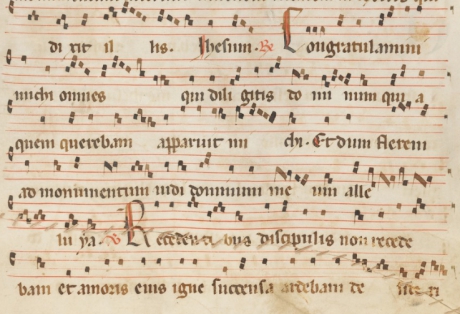 di xit il lis. Jhesum. R Congratulamini
michi omnes qui dili gitis do mi num qui a
quem querebam apparuit mi chi. Et dum flerem
ad monumentum uidi dominum me um alle
lu ya. V Recedenti bus discipulis non recede
bam et amoris eius igne succensa ardebam de